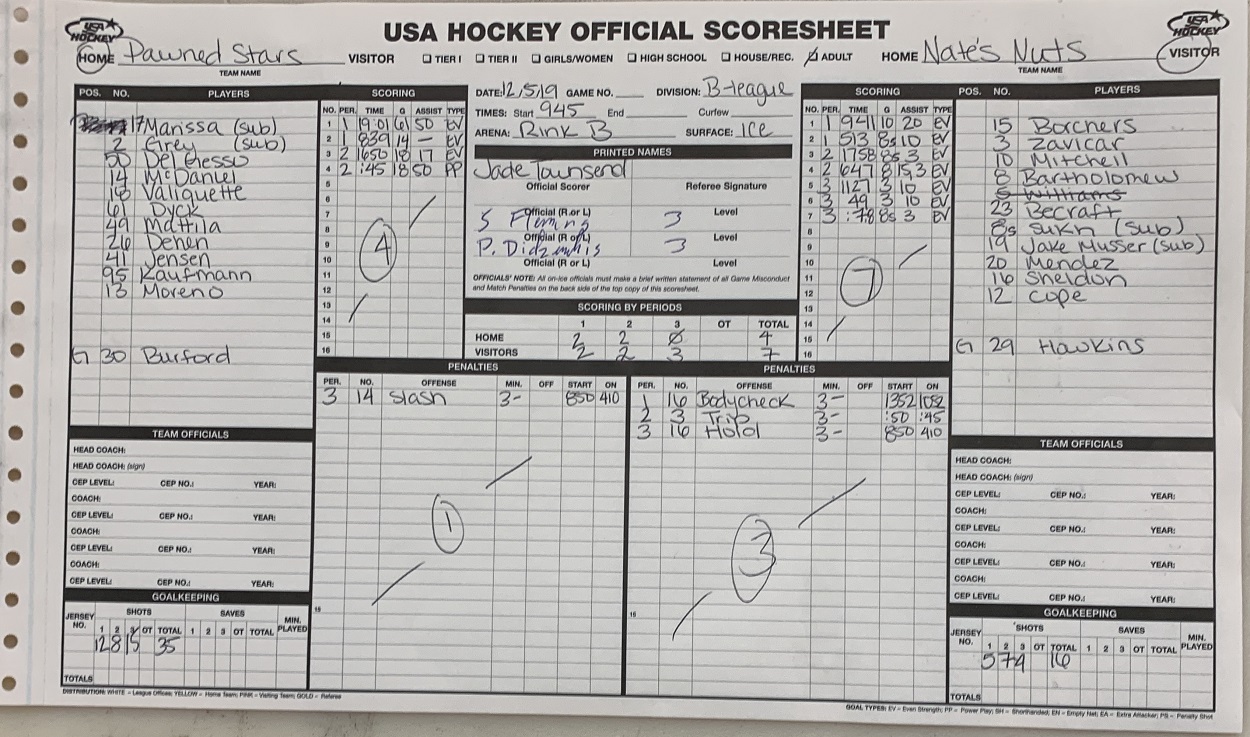 USA HOCKEY
USA HOCKEY OFFICIAL SCORESHEET
USA HOCKEY
HOME Pawned Stars VISITOR ☐ TIER I ☐ TIER II ☐ GIRLS/WOMEN ☐ HIGH SCHOOL ☐ HOUSE/REC. ☑ ADULT HOME Nate's Nuts VISITOR
TEAM NAME TEAM NAME
POS. NO. PLAYERS
17 Marissa (sub)
2 Grey (sub)
50 Del Gesso
14 McDaniel
18 Valiquette
61 Dyck
49 Mattila
26 Denen
41 Jensen
95 Kaufmann
13 Moreno
G 30 Burford
SCORING
NO. PER. TIME G ASSIST TYPE
1 1 19:01 61 50 EV
2 1 839 14 - EV
3 2 1650 18 17 EV
4 2 :45 18 50 PP
5
6
7
8
9
10
11
12
13
14
15
16
4
DATE: 12/5/19 GAME NO. DIVISION: B-league
TIMES: Start 945 End Curfew
ARENA: Rink B SURFACE: ICE
PRINTED NAMES
Jade Townsend
Official Scorer Referee Signature
S Fleming 3
Official (R or L) Level
P. 3
Official (R or L) Level
Official (R or L) Level
OFFICIALS' NOTE: All on-ice officials must make a brief written statement of all Game Misconduct
and Match Penalties on the back side of the top copy of this scoresheet.
SCORING BY PERIODS
1 2 3 OT TOTAL
HOME 2 2 0 4
VISITORS 2 2 3 7
SCORING
NO. PER. TIME G ASSIST TYPE
1 1 941 10 20 EV
2 1 513 8s 10 EV
3 2 1758 8s 3 EV
4 2 647 8 15,3 EV
5 3 1127 3 10 EV
6 3 49 3 10 EV
7 3 :7.8 8s 3 EV
8
9
10
11
12
14
15
16
7
POS. NO. PLAYERS
15 Borchers
3 Zavicar
10 Mitchell
8 Bartholomew
5 Williams
23 Becraft
8s Sukn (sub)
19 Jake Musser (sub)
20 Mendez
16 Sheldon
12 Cope
G 29 Hawkins
PENALTIES
PER. NO. OFFENSE MIN. OFF START ON
3 14 Slash 3- 850 410
1
15
PENALTIES
PER. NO. OFFENSE MIN. OFF START ON
1 16 Bodycheck 3- 1352 1052
2 3 Trip 3- :50 :45
3 16 Hold 3- 850 410
3
15
TEAM OFFICIALS
HEAD COACH:
HEAD COACH: (sign)
CEP LEVEL: CEP NO.: YEAR:
COACH:
CEP LEVEL: CEP NO.: YEAR:
COACH:
CEP LEVEL: CEP NO.: YEAR:
COACH:
CEP LEVEL: CEP NO.: YEAR:
GOALKEEPING
JERSEY NO. SHOTS SAVES MIN. PLAYED
1 2 3 OT TOTAL 1 2 3 OT TOTAL
12 8 15 35
TOTALS
TEAM OFFICIALS
HEAD COACH:
HEAD COACH: (sign)
CEP LEVEL: CEP NO.: YEAR:
COACH:
CEP LEVEL: CEP NO.: YEAR:
COACH:
CEP LEVEL: CEP NO.: YEAR:
COACH:
CEP LEVEL: CEP NO.: YEAR:
GOALKEEPING
JERSEY NO. SHOTS SAVES MIN. PLAYED
1 2 3 OT TOTAL 1 2 3 OT TOTAL
5 7 4 16
TOTALS
DISTRIBUTION: WHITE - League Offices; YELLOW - Home Team; PINK - Visiting Team; GOLD - Referee
GOAL TYPES: EV - Even Strength; PP - Power Play; SH - Shorthanded; EN - Empty Net; EA - Extra Attacker; PS - Penalty Shot